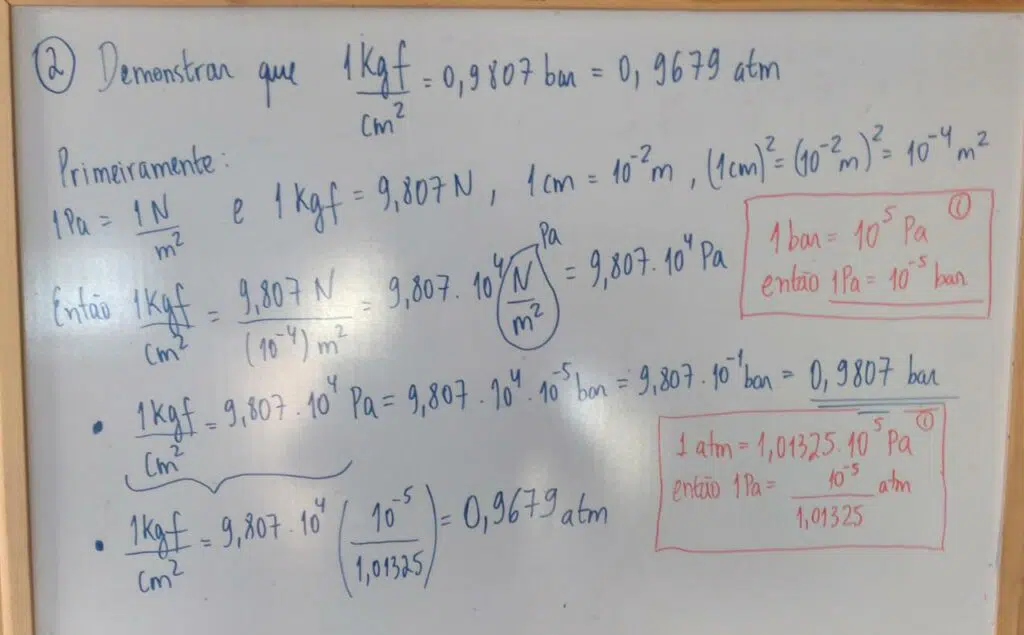 ② Demonstrar que 1Kgf/cm² = 0,9807 bar = 0,9679 atm
Primeiramente:
1Pa = 1N/m² e 1Kgf = 9,807N, 1cm = 10⁻²m, (1cm)² = (10⁻²m)² = 10⁻⁴m²
1 bar = 10⁵ Pa ①
então 1Pa = 10⁻⁵ bar
Então 1Kgf/cm² = 9,807 N/(10⁻⁴)m² = 9,807 . 10⁴ N/m² Pa = 9,807 . 10⁴ Pa
• 1Kgf/cm² = 9,807 . 10⁴ Pa = 9,807 . 10⁴ . 10⁻⁵ bar = 9,807 . 10⁻¹ bar = 0,9807 bar
1 atm = 1,01325 . 10⁵ Pa ①
então 1Pa = 10⁻⁵/1,01325 atm
• 1Kgf/cm² = 9,807 . 10⁴ (10⁻⁵/1,01325) = 0,9679 atm